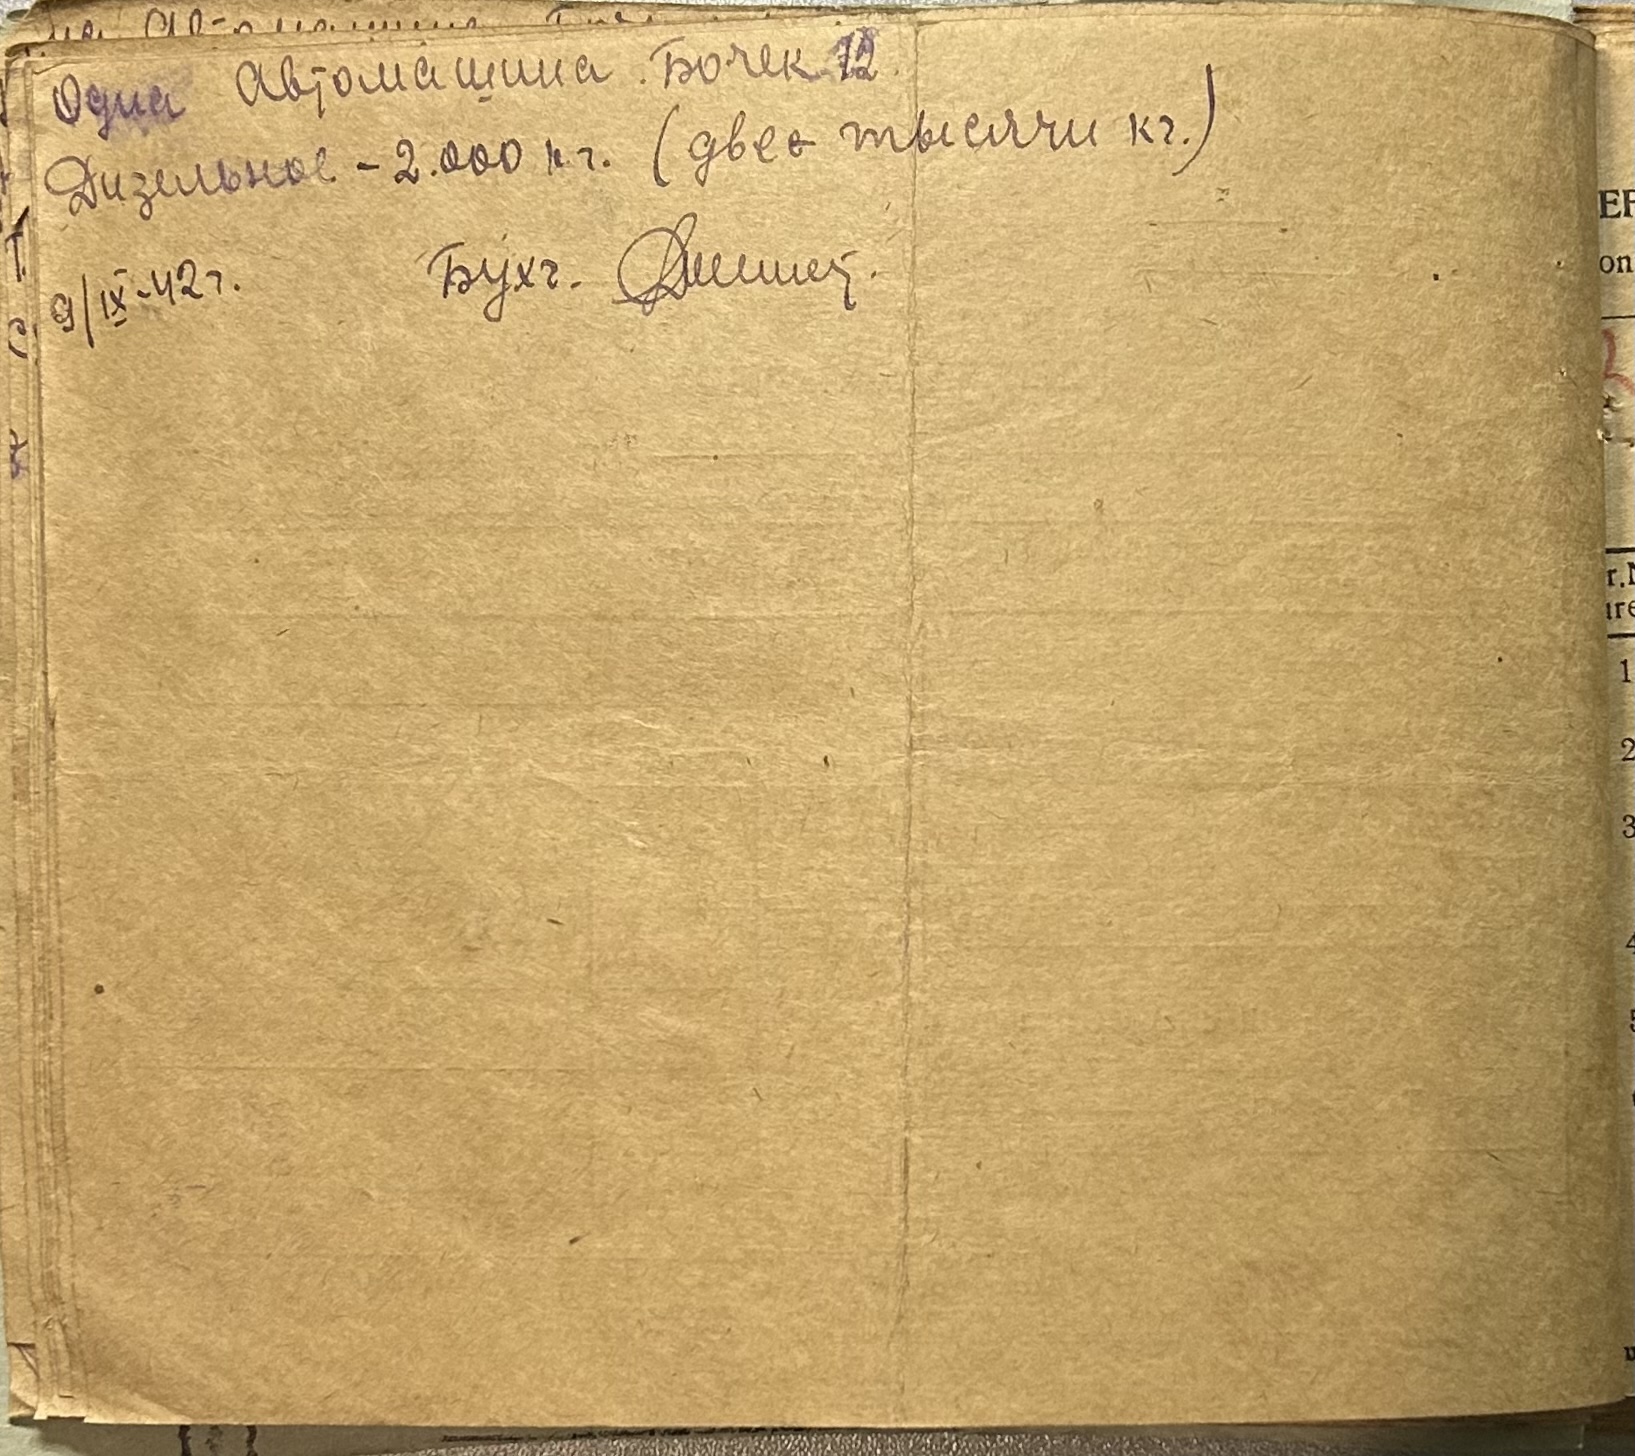 Одна Автомашина. Бочек 12.
Дизельное - 2.000 кг. (две тысячи кг.)
9/IX-42г. Бухг.
ER
on
r.N
ure
1
2
3
4
5